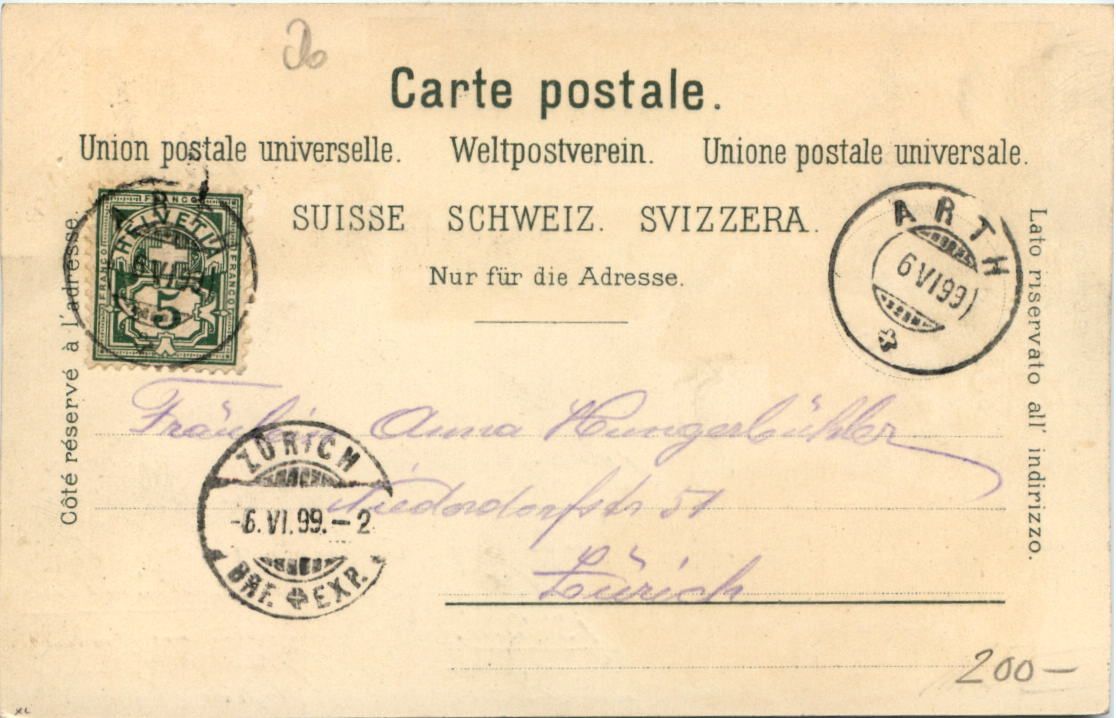 Carte postale.
Union postale universelle. Weltpostverein. Unione postale universale.
SUISSE SCHWEIZ. SVIZZERA.
Nur für die Adresse.
Côté réservé à l'adresse.
Lato riservato all' indirizzo.
FRANCO
HELVETIA
FRANCO FRANCO
5
ARTH
6 VI 99
Fräulein Anna Hungerbühler
Niederdorfstr 51
Zürich
ZÜRICH
-6.VI.99.-2
BRF. EXP.
200—
XL